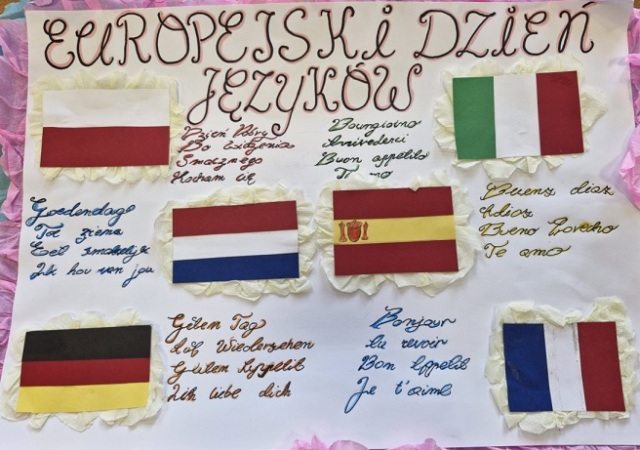 EUROPEJSKI DZIEŃ
JĘZYKÓW
Dzień Dobry
Do widzenia
Smacznego
Kocham cię
Boungiorno
Arrivederci
Buon appetito
Ti amo
Goedendag
Tot ziens
Eet smakelijk
Ik hou van jou
Buenz diaz
Adios
Bueno Provecho
Te amo
Gutem Tag
Auf Wiedersehen
Guten Appetit
Ich liebe dich
Bonjour
Au revoir
Bon Appetit
Je t'aime